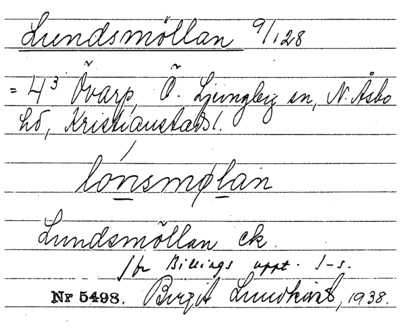 Lundsmöllan 9/128
= 4³ Övarp, Ö. Ljungby sn, N. Åsbo
hd, Kristianstads l.
lónsmølan
Lundsmöllan ek.
/fr Billings uppt. 1-s.
Nr 5498. Birgit Lundkvist, 1938.